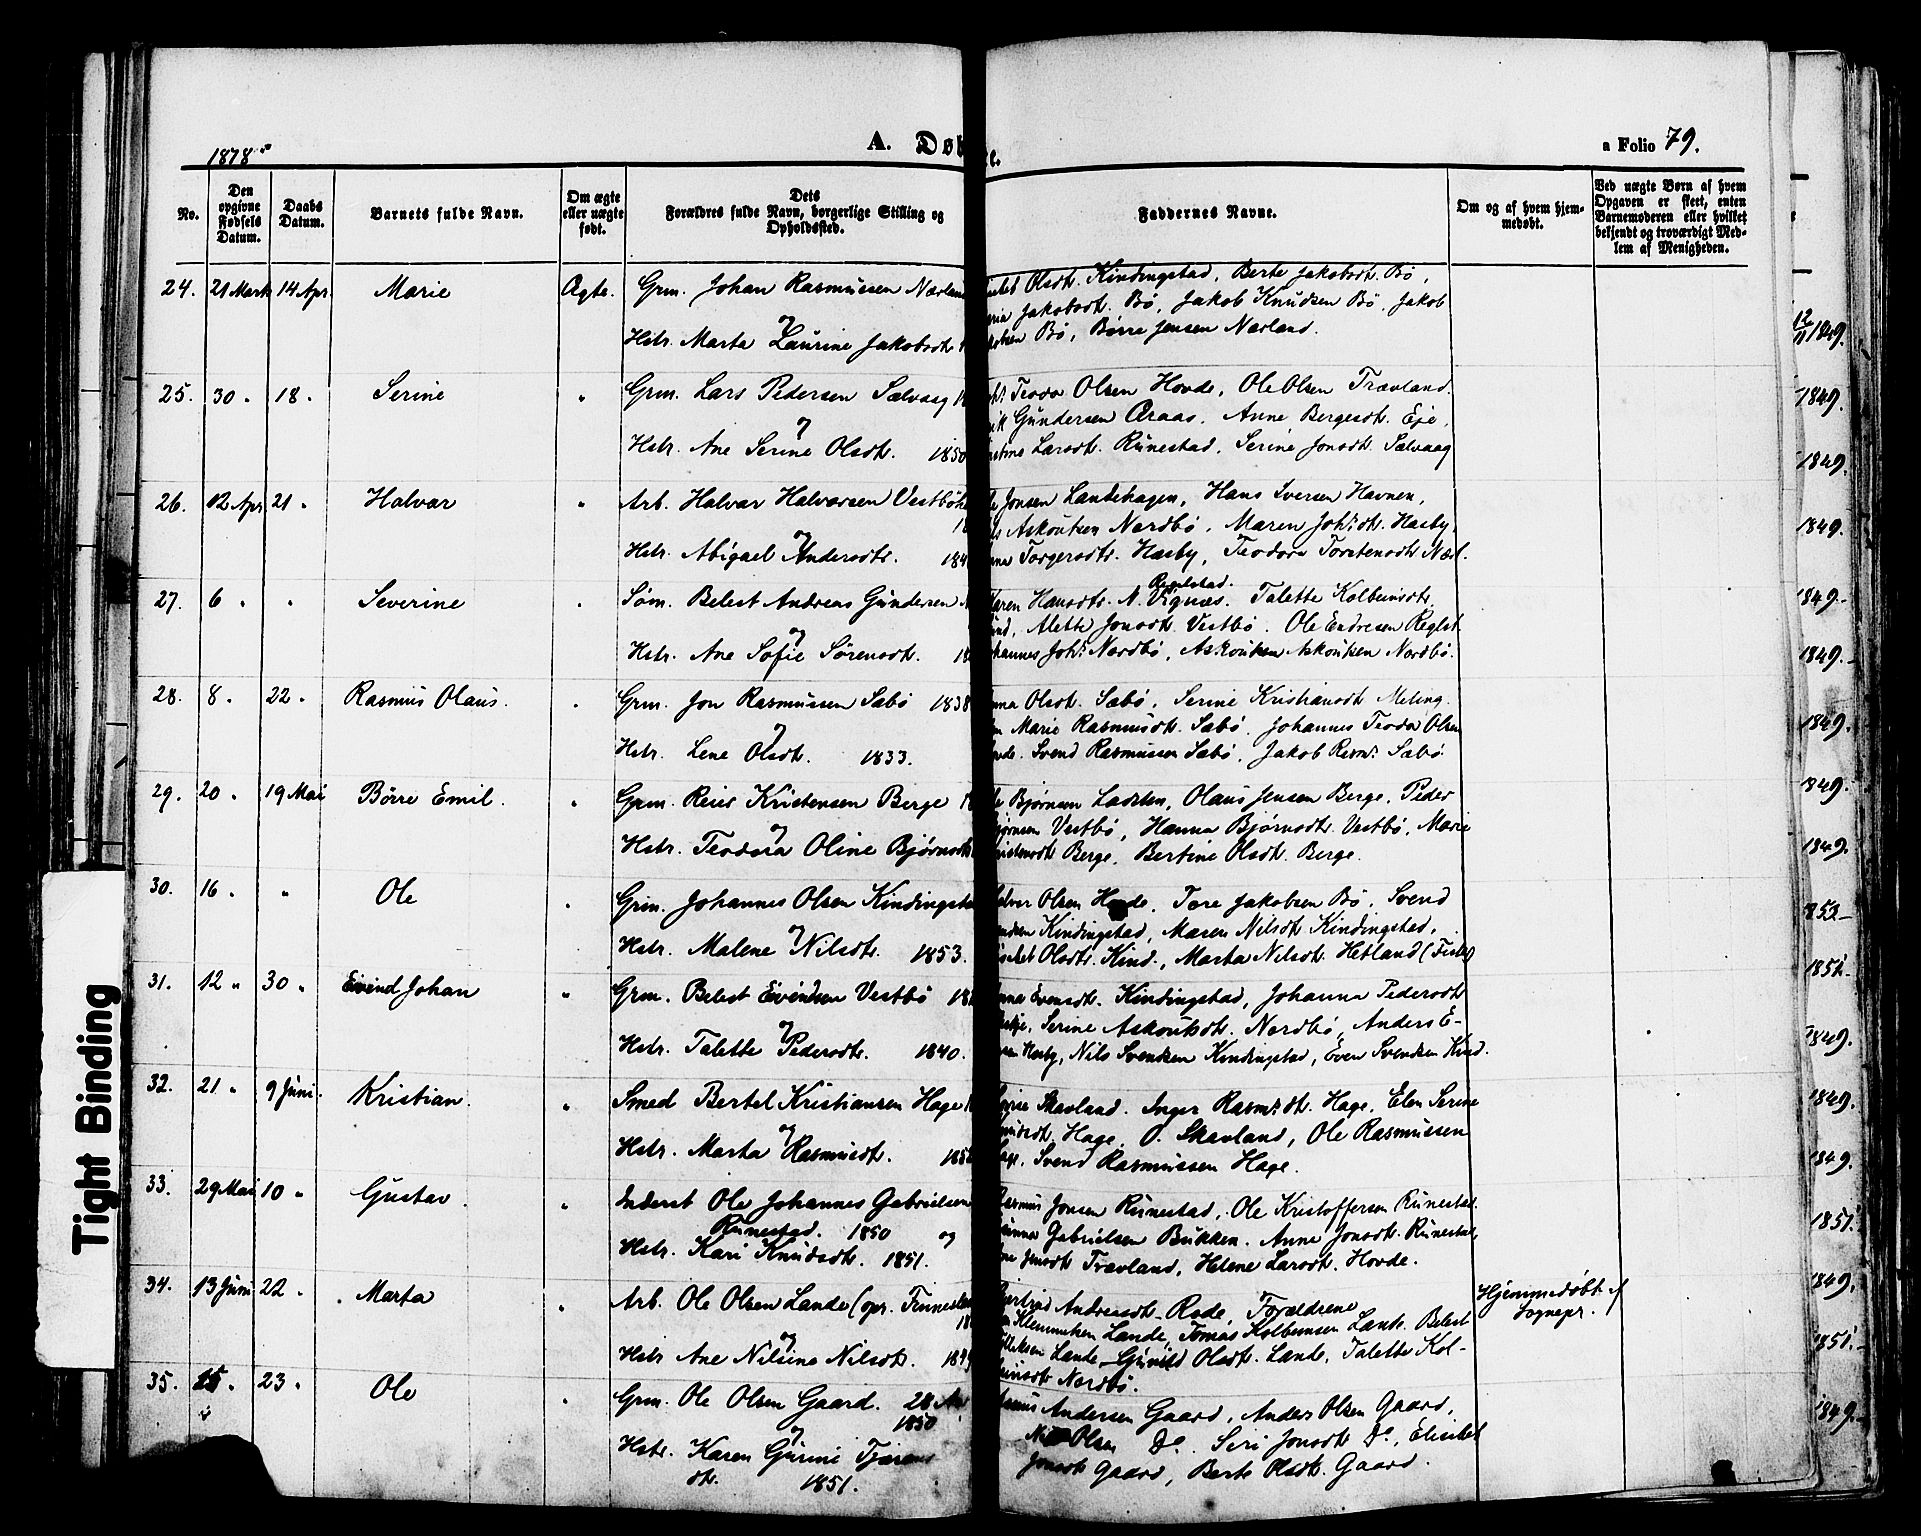 1878.
A. Døb
e.
a Folio 79.
No.
Den opgivne Fødsels Datum.
Daabs Datum.
Barnets fulde Navn.
Om ægte eller uægte født.
Dets Forældres fulde Navn, borgerlige Stilling og Opholdssted.
Faddernes Navne.
Om og af hvem hjemmedøbt.
Ved uægte Børn af hvem Opgaven er skeet, enten Barnemoderen eller hvilket bekjendt og troværdigt Medlem af Menigheden.
24. 21 Marts 14 Apr. Marie Ægte. Grm. Johan Rasmussen Nærlan
og
Hstr. Marta Laurine Jakobsdtr.
Olsdt. Kindingstad, Berte Jakobsdt. Bø,
Jakobsdt. Bø, Jakob Knudsen Bø, Jakob
Bø, Børre Jensen Nærland.
25. 30 " 18 " Serine " Grm. Lars Pedersen Sælvaag
og
Hstr. Ane Serine Olsdtr. 1850
Teodor Olsen Hovde, Ole Olsen Trævland
Gundersen Araas, Anne Bergesdt. Eje,
Larsdt. Runestad, Serine Jonsdt. Sælvaag
26. 12 Apr. 21 " Halvar " Arb. Halvar Halvorsen Vestbø
og
Hstr. Abigael Andersdtr.
Jonsen Landehagen, Hans Iversen Havnen,
Askoutsen Nordbø, Maren Johs.dt. Hæsby,
Torgersdtr. Hæsby, Teodora Torstensdt. Nærl.
27. 6 " " Severine " Søm. Belest Andreas Gundersen
og
Hstr. Ane Sofie Sørensdt.
Regelstad.
Hansdtr. N. Vignæs. Talette Kolbeinsdtr.
Alette Jonsdt. Vestbø. Ole Endresen Reglst.
Johs. Nordbø, Askoutsen Askoutsen Nordbø.
28. 8 " 22 " Rasmus Olaus. " Grm. Jon Rasmussen Sæbø 1838
og
Hstr. Lene Olsdt. 1833.
Olsdt. Sæbø, Serine Kristiansdt. Meling.
Marie Rasmusdt. Sæbø, Johannes Teodor Olsen
Svend Rasmussen Sæbø, Jakob Rasm. Sæbø
29. 20 " 19 Mai Børre Emil. " Grm. Reier Kristensen Berge
og
Hstr. Teodora Oline Bjørnsdt.
Bjørnsen Ladsten, Olaus Jensen Berge, Peder
Vestbø, Hanna Bjørnsdtr. Vestbø, Marie
Berge, Bertine Olsdt. Berge.
30. 16 " " Ole " Grm. Johannes Olsen Kindingsta
og
Hstr. Malene Nilsdtr. 1853.
Olsen Hovde, Tore Jakobsen Bø, Svend
Kindingstad, Maren Nilsdt. Kindingstad,
Olsdtr. Kind., Marta Nilsdt. Hetland (Fister)
31. 12 " 30 " Eivind Johan " Grm. Belest Eivindsen Vestbø
og
Hstr. Talette Pedersdtr. 1840.
Evensdt. Kindingstad, Johanna Pedersdt.
Serine Askoutsdt. Nordbø, Anders E-
Hæsby, Nils Svendsen Kindingstad, Even Svendsen Kind.
32. 21 " 9 Juni. Kristian " Smed Bertel Kristiansen Hage
og
Hstr. Marta Rasmusdt.
Skavland. Inger Rasm.dt. Hage, Elen Serine
Hage, O. Skavland, Ole Rasmussen
Svend Rasmussen Hage.
33. 29 Mai 10 " Gustav " Inderst Ole Johannes Gabrielsen
Runestad. 1850 og
Hstr. Kari Knudsdt. 1851.
Jonsen Runestad, Ole Kristoffersen Runestad.
Gabrielsen Bukken. Anne Jonsdt. Runestad,
Jonsdt. Trævland, Helene Larsdt. Hovde.
34. 13 Juni 22 " Marta " Arb. Ole Olsen Lande (opr. Finnesta
og
Hstr. Ane Nilsine Nilsdt.
Andreasdt. Rade, Forældrene
Klemmetsen Lande, Tomas Kolbeinsen Lande. Belest
Lande, Gunild Olsdt. Lande, Talette Kol-
Nordbø.
Hjemmedøbt af
Sognepr.
35. 15 " 23 " Ole " Grm. Ole Olsen Gaard.
1850
og
Hstr. Karen Gurine Tjærans
dtr. 1851.
Andersen Gaard, Anders Olsen Gaard,
Olsen Do. Siri Jonsdt. Do, Elisabet
Jonsdt. Gaard, Berte Olsdt. Gaard.
1849.
1849.
1849.
1849.
1849.
1849.
1849.
1849.
1849.
1851.
1849.
1849.
1849.
1851.
1849.
1851.
1849.
Tight Binding